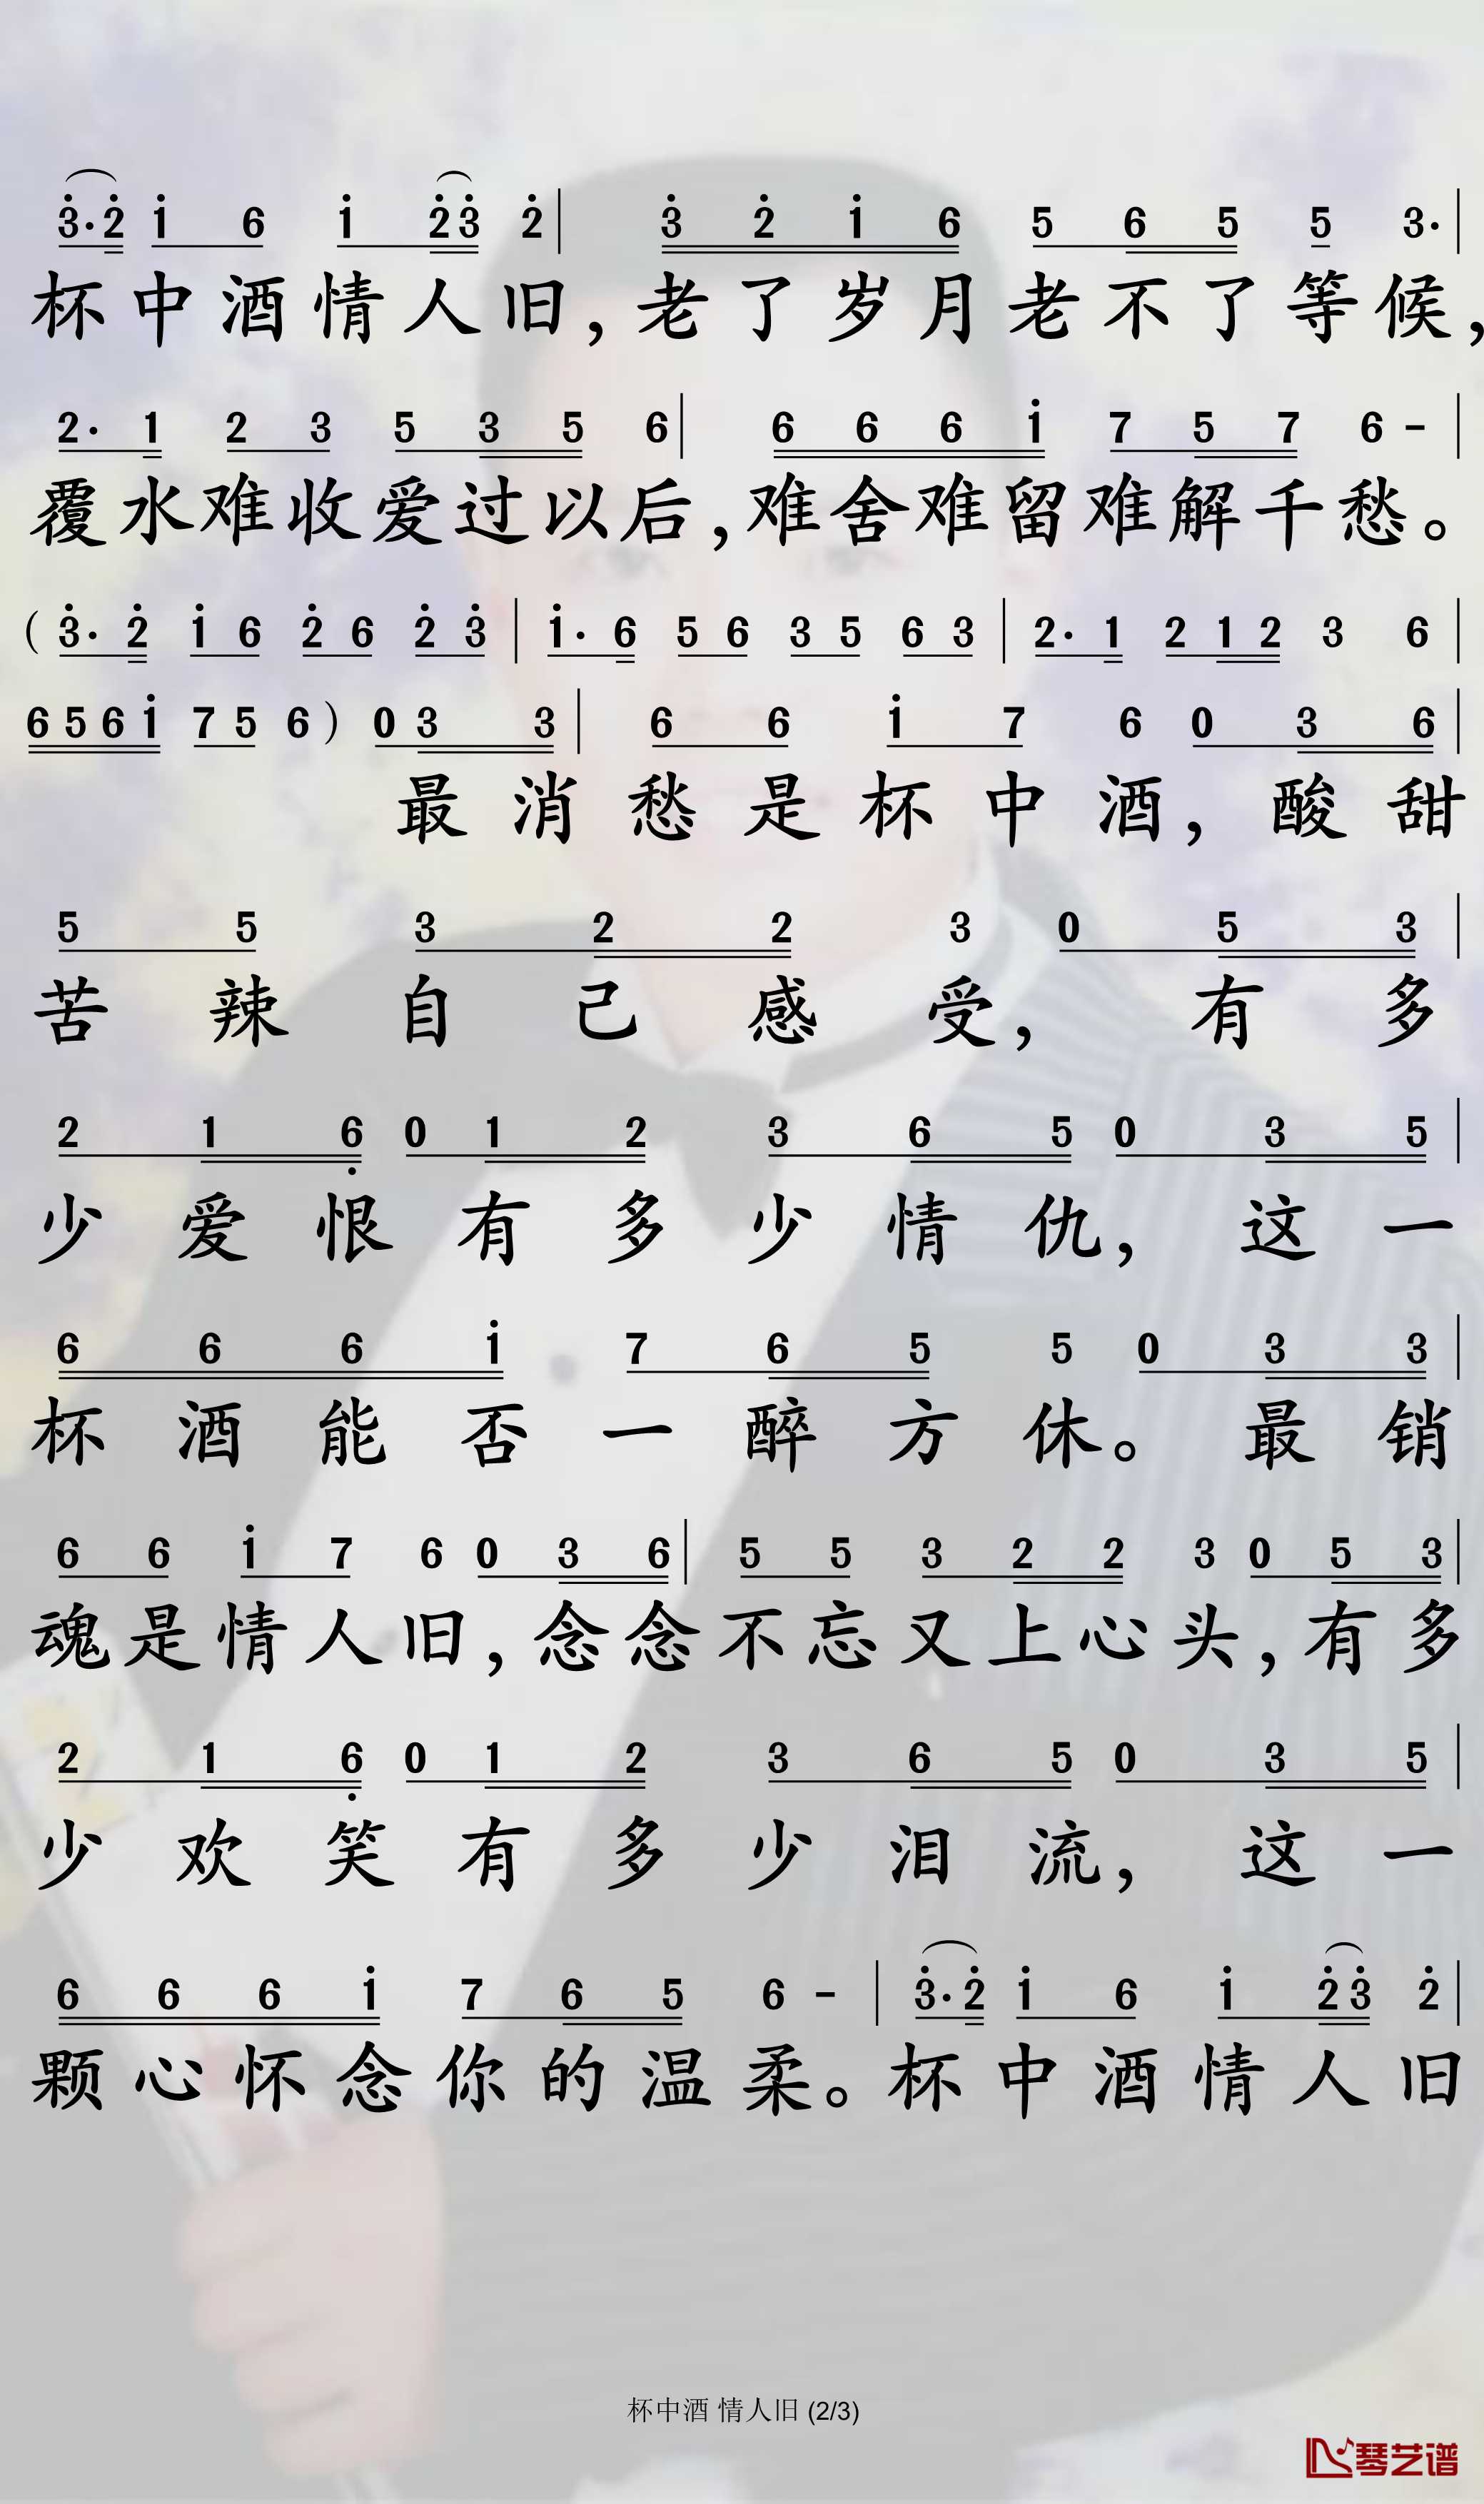 3̇·2̇ 1̇ 6 1̇ 2̇3̇ 2̇| 3̇ 2̇ 1̇ 6 5 6 5 5 3·|
杯中酒情人旧,老了岁月老不了等候,
2· 1 2 3 5 3 5 6| 6 6 6 1̇ 7 5 7 6 - |
覆水难收爱过以后,难舍难留难解千愁。
( 3̇· 2̇ 1̇ 6 2̇ 6 2̇ 3̇ | 1̇· 6 5 6 3 5 6 3 | 2· 1 2 1 2 3 6 |
6 5 6 1̇ 7 5 6 ) 0 3 3 | 6 6 1̇ 7 6 0 3 6|
最消愁是杯中酒,酸甜
5 5 3 2 2 3 0 5 3 |
苦辣自己感受,有多
2 1 6̣ 0 1 2 3 6 5 0 3 5 |
少爱恨有多少情仇,这一
6 6 6 1̇ 7 6 5 5 0 3 3 |
杯酒能否一醉方休。最销
6 6 1̇ 7 6 0 3 6| 5 5 3 2 2 3 0 5 3|
魂是情人旧,念念不忘又上心头,有多
2 1 6̣ 0 1 2 3 6 5 0 3 5 |
少欢笑有多少泪流,这一
6 6 6 1̇ 7 6 5 6 - | 3̇·2̇ 1̇ 6 1̇ 2̇3̇ 2̇|
颗心怀念你的温柔。杯中酒情人旧
杯中酒 情人旧 (2/3)
琴艺谱